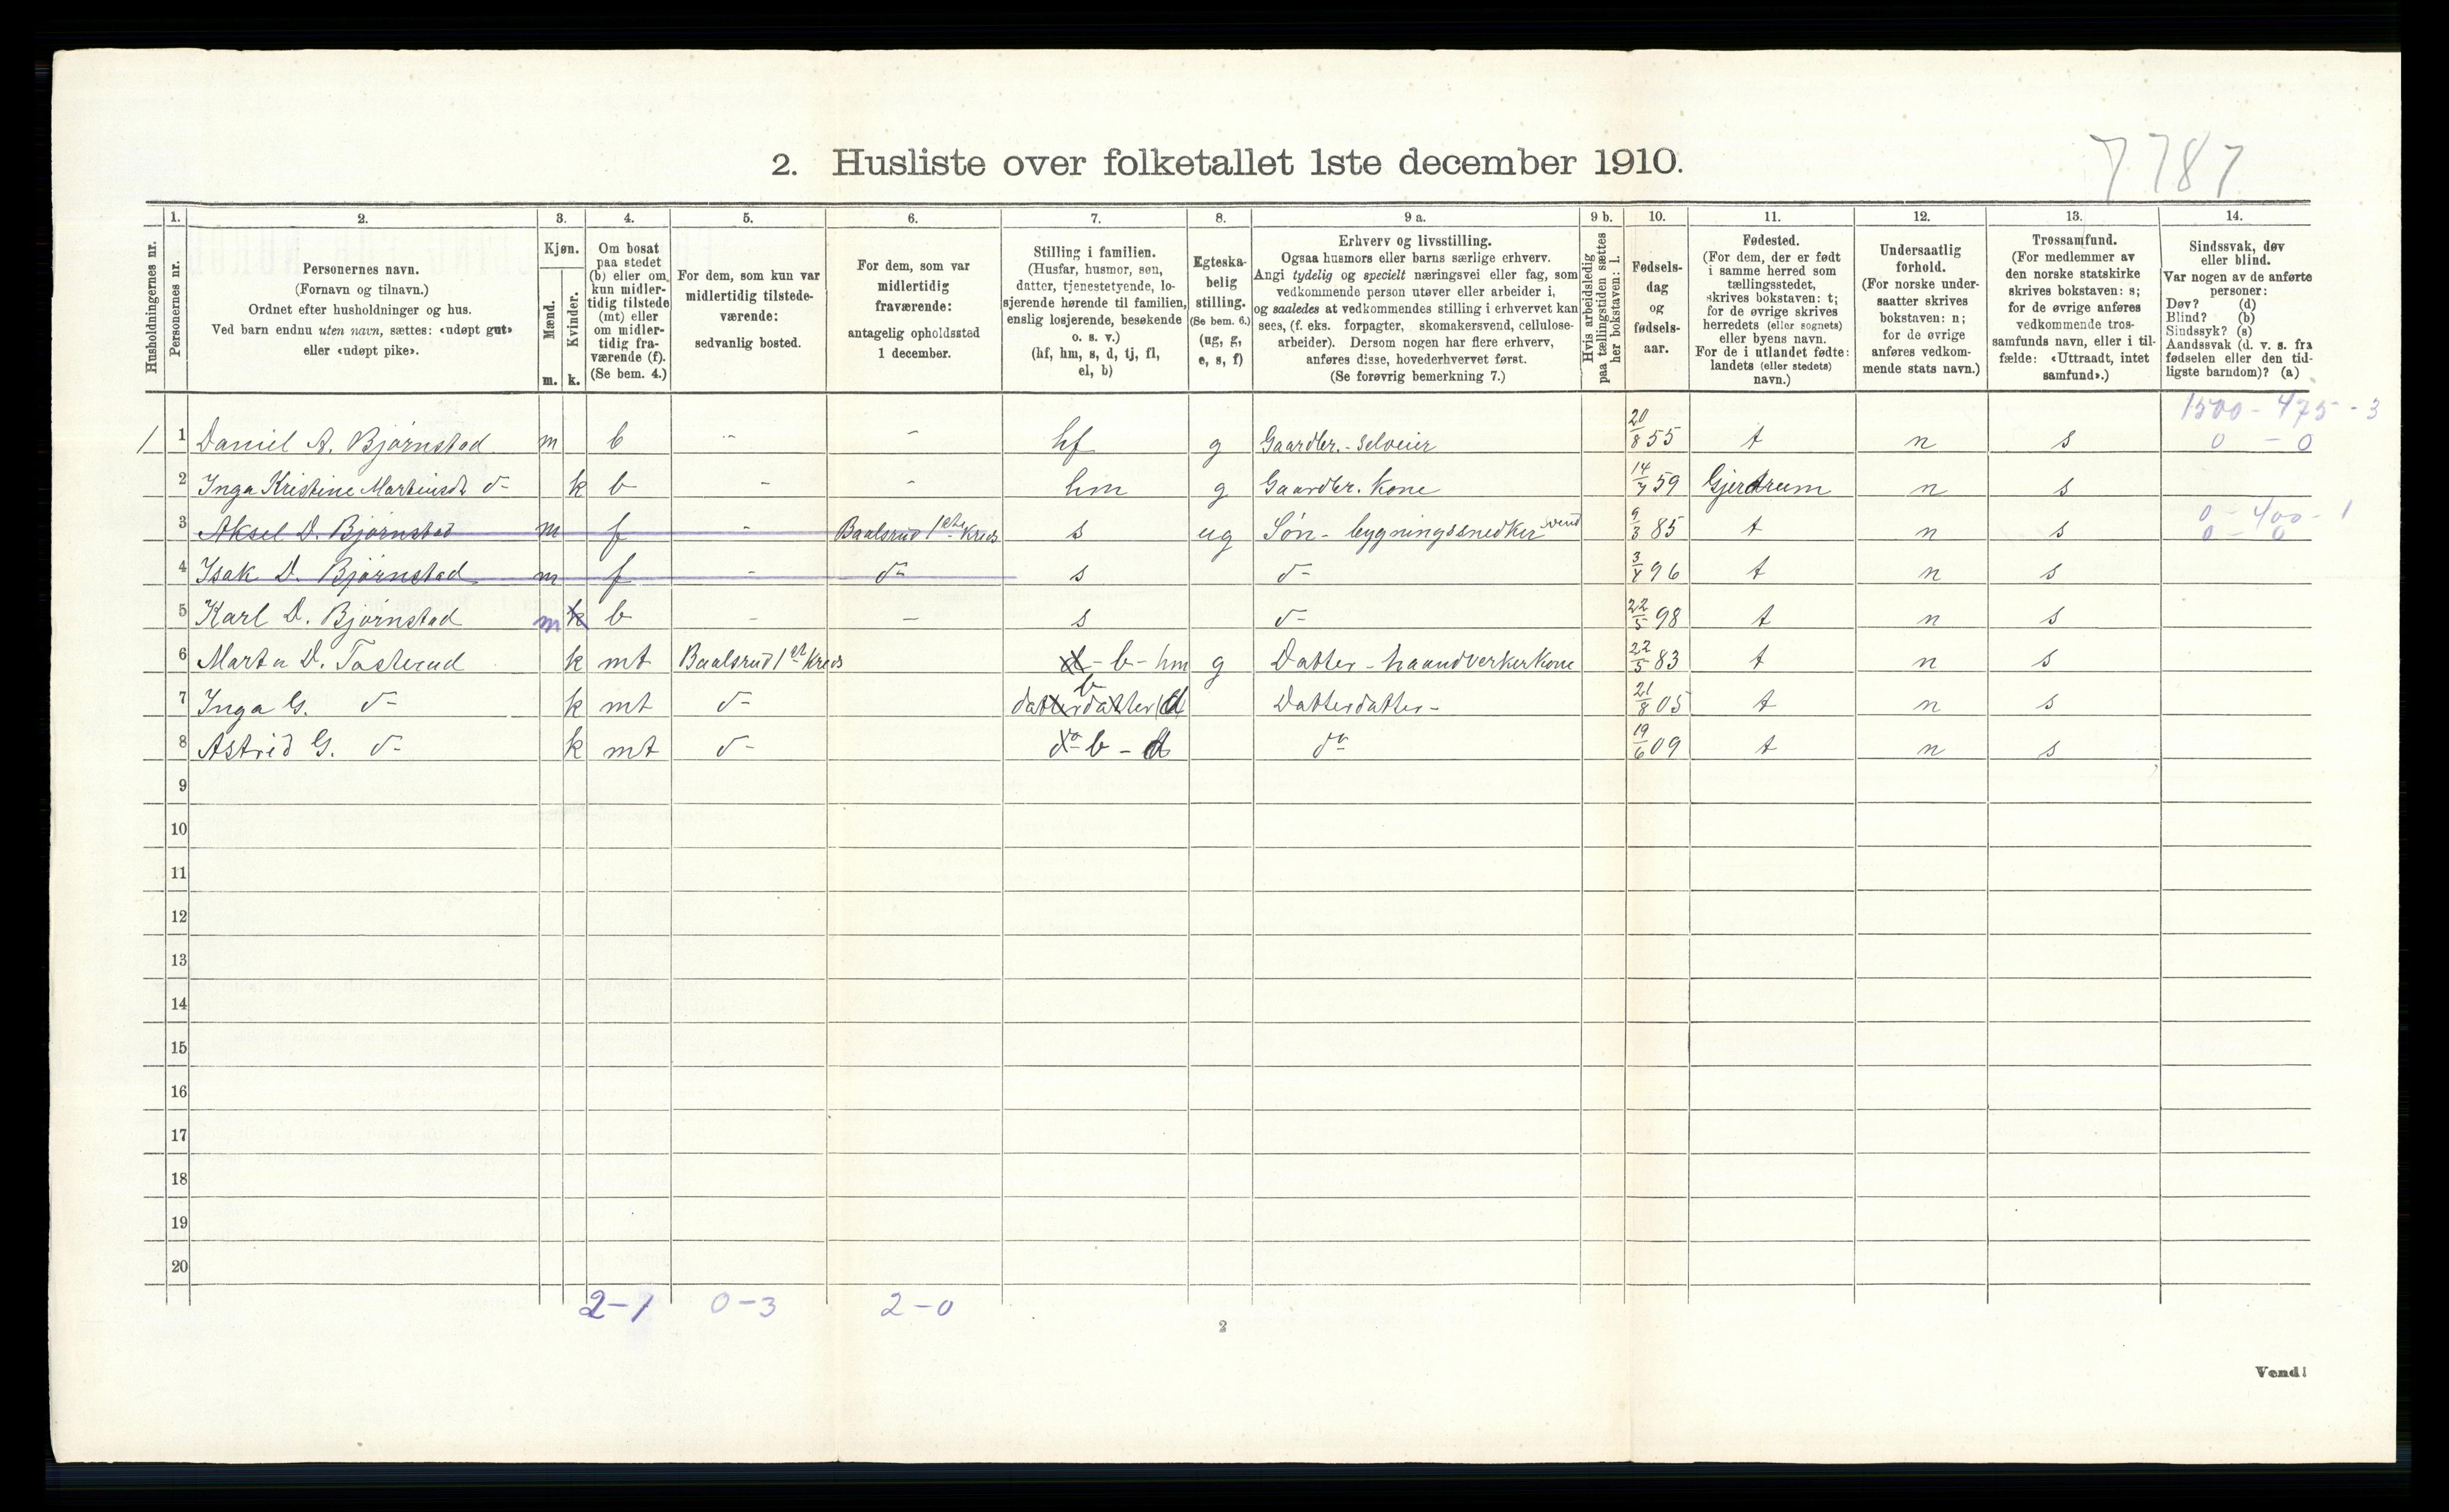 7787
2. Husliste over folketallet 1ste december 1910.
Husholdningernes nr.
1.
Personernes nr.
2.
Personernes navn.
(Fornavn og tilnavn.)
Ordnet efter husholdninger og hus.
Ved barn endnu uten navn, sættes: «udøpt gut»
eller «udøpt pike».
3.
Kjøn.
Mænd.
Kvinder.
m. k.
4.
Om bosat
paa stedet
(b) eller om
kun midler-
tidig tilstede
(mt) eller
om midler-
tidig fra-
værende (f).
(Se bem. 4.)
5.
For dem, som kun var
midlertidig tilstede-
værende:
sedvanlig bosted.
6.
For dem, som var
midlertidig
fraværende:
antagelig opholdssted
1 december.
7.
Stilling i familien.
(Husfar, husmor, søn,
datter, tjenestetyende, lo-
sjerende hørende til familien,
enslig losjerende, besøkende
o. s. v.)
(hf, hm, s, d, tj, fl,
el, b)
8.
Egteska-
belig
stilling.
(Se bem. 6.)
(ug, g,
e, s, f)
9 a.
Erhverv og livsstilling.
Ogsaa husmors eller barns særlige erhverv.
Angi tydelig og specielt næringsvei eller fag, som
vedkommende person utøver eller arbeider i,
og saaledes at vedkommendes stilling i erhvervet kan
sees, (f. eks. forpagter, skomakersvend, cellulose-
arbeider). Dersom nogen har flere erhverv,
anføres disse, hovederhvervet først.
(Se forøvrig bemerkning 7.)
9 b.
Hvis arbeidsledig
paa tællingstiden sættes
her bokstaven: l.
10.
Fødsels-
dag
og
fødsels-
aar.
11.
Fødested.
(For dem, der er født
i samme herred som
tællingsstedet,
skrives bokstaven: t;
for de øvrige skrives
herredets (eller sognets)
eller byens navn.
For de i utlandet fødte:
landets (eller stedets)
navn.)
12.
Undersaatlig
forhold.
(For norske under-
saatter skrives
bokstaven: n;
for de øvrige
anføres vedkom-
mende stats navn.)
13.
Trossamfund.
(For medlemmer av
den norske statskirke
skrives bokstaven: s;
for de øvrige anføres
vedkommende tros-
samfunds navn, eller i til-
fælde: «Uttraadt, intet
samfund».)
14.
Sindssvak, døv
eller blind.
Var nogen av de anførte
personer:
Døv? (d)
Blind? (b)
Sindssyk? (s)
Aandssvak (d. v. s. fra
fødselen eller den tid-
ligste barndom)? (a)
1500 - 475 - 3
1 1 Daniel A. Bjørnstad m b - - hf g Gaardbr. - Selveier 20/8 55 t n s 0 - 0
2 Inga Kristine Martinsdt do k b - - hm g Gaardbr. Kone 14/7 59 Gjerdrum n s
3 Aksel D. Bjørnstad m f - Baalsrud 1ste Kreds s ug Søn - bygningssnedker svend 9/3 85 t n s 0 - 400 - 1
0 - 0
4 Isak D. Bjørnstad m f - do s do 3/4 96 t n s
5 Karl D. Bjørnstad m k b - - s do 22/5 98 t n s
6 Marta D. Tosterud k mt Baalsrud 1st Kreds d - b - hm g Datter - haandverkerkone 22/5 83 t n s
7 Inga G. do k mt do datterdatter b d Datterdatter - 21/8 05 t n s
8 Astrid G. do k mt do do b - d do 19/6 09 t n s
9
10
11
12
13
14
15
16
17
18
19
20
2-1 0-3 2-0
2
Vend!